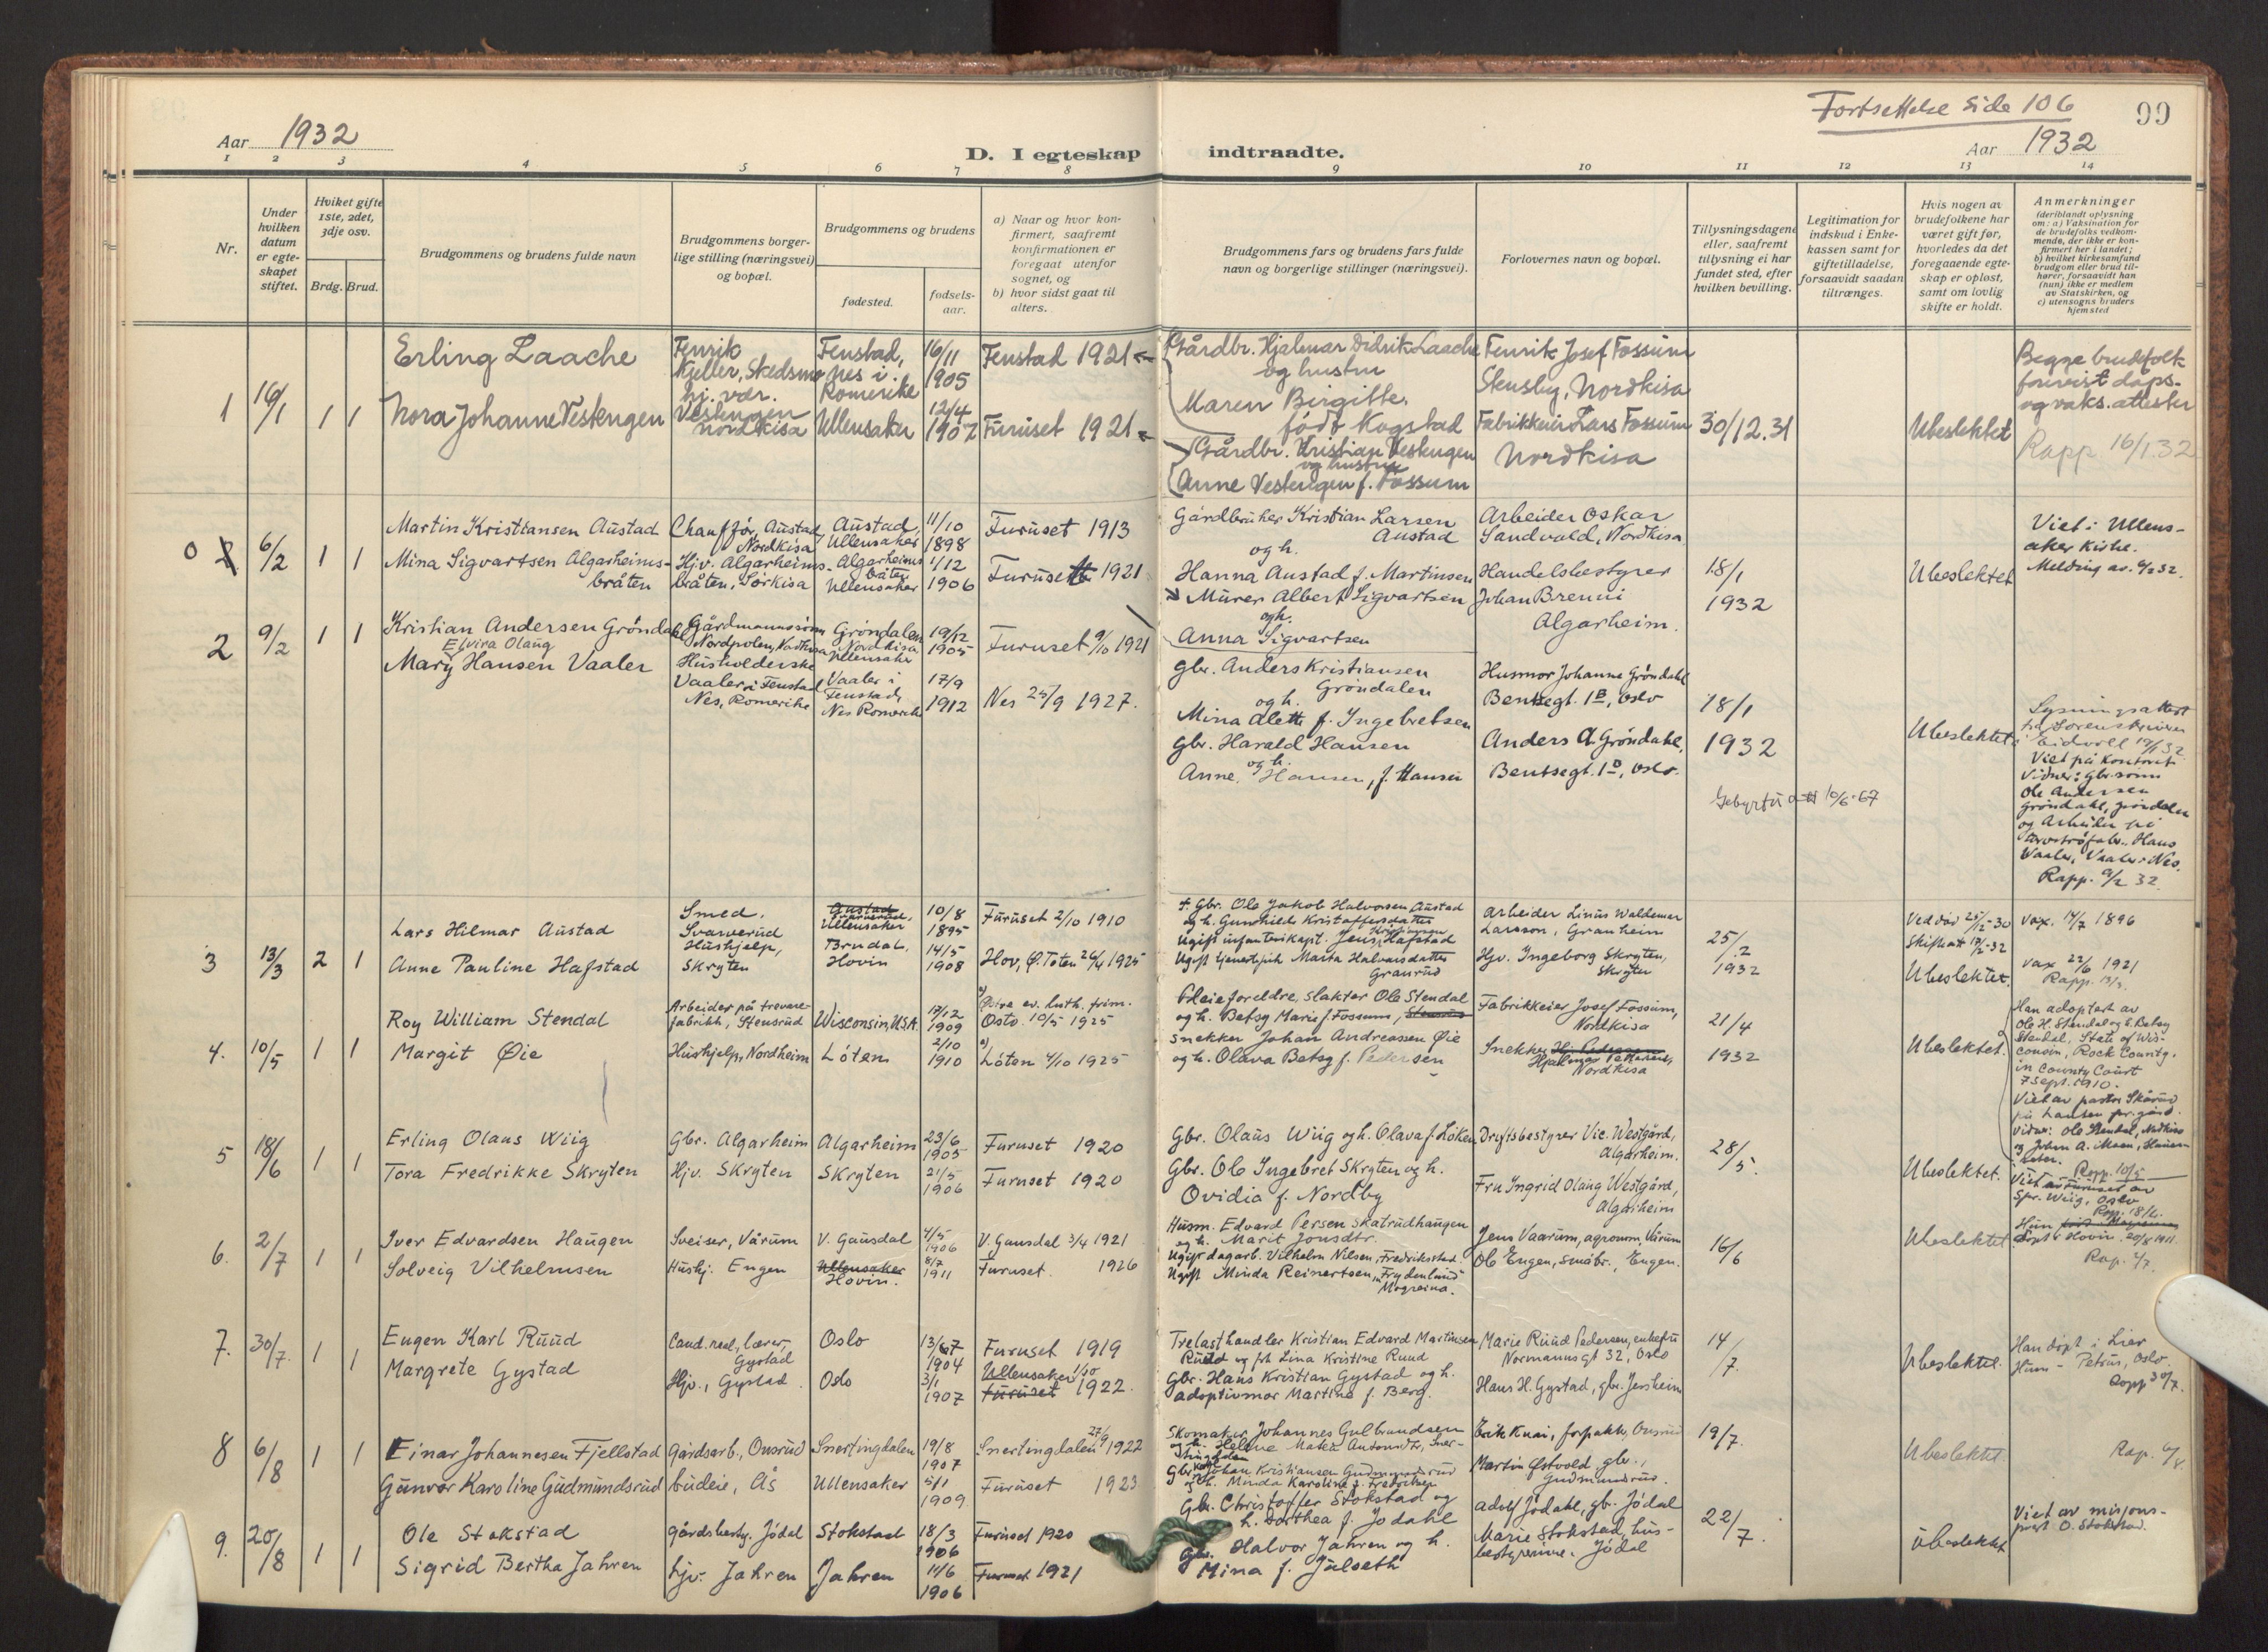 Fortsettelse side 106
99
Aar 1932
D. I egteskap indtraadte.
Aar 1932
1 2 3 4 5 6 7 8 9 10 11 12 13 14
Nr.
Under hvilken datum er egteskapet stiftet.
Hviket gifte 1ste, 2det, 3dje osv.
Brdg. Brud.
Brudgommens og brudens fulde navn
Brudgommens borgerlige stilling (næringsvei) og bopæl.
Brudgommens og brudens
fødested.
fødselsaar.
a) Naar og hvor konfirmert, saafremt konfirmationen er foregaat utenfor sognet, og
b) hvor sidst gaat til alters.
Brudgommens fars og brudens fars fulde navn og borgerlige stillinger (næringsvei).
Forlovernes navn og bopæl.
Tillysningsdagene eller, saafremt tillysning ei har fundet sted, efter hvilken bevilling.
Legitimation for indskud i Enkekassen samt for giftetilladelse, forsaavidt saadan tiltrænges.
Hvis nogen av brudefolkene har været gift før, hvorledes da det foregaaende egteskap er opløst, samt om lovlig skifte er holdt.
Anmerkninger
(deriblandt oplysning om: a) Vaksination for de brudefolks vedkommende, der ikke er konfirmert her i landet;
b) hvilket kirkesamfund brudgom eller brud tilhører, forsaavidt han (hun) ikke er medlem av Statskirken, og
c) utensogns bruders hjemsted
1 16/1 1 1
Erling Laache
Fenrik
Kjeller, Skedsmo
Fenstad,
nes i
Romerike
16/11
1905
Fenstad 1921
Gårdbr. Hjalmar Didrik Laache
og hustru
Maren Birgitte,
født Kogstad
Fenrik Josef Fossum
Stensby, Nordkisa
Nora Johanne Vestengen
hj. vær.
Vestengen
Nordkisa
Ullensaker
12/4
1907
Furuset 1921
Gårdbr. Kristian Vestengen
og hustru
Anne Vestengen f. Fossum
Fabrikkeier Lars Fossum
Nordkisa
30/12.31
Ubeslektet
Begge brudefolk
forevist dåps-
og vaks. attester
Rapp. 16/1.32
0 2 6/2 1 1
Martin Kristiansen Austad
Chauffør, Austad
Nordkisa
Austad,
Ullensaker
11/10
1898
Furuset 1913
Gårdbruker Kristian Larsen
Austad
og h.
Hanna Austad f. Martinsen
Arbeider Oskar
Sandvold, Nordkisa
Mina Sigvartsen Algarheims-
bråten
Hjv. Algarheims-
bråten, Sørkisa
Algarheims
bråten
Ullensaker
1/12
1906
Furuset 1921
Murer Albert Sigvartsen
og h.
Anna Sigvartsen
Handelsbestyrer
Johan Brenni
Algarheim.
18/1
1932
Ubeslektet
Viet i Ullens-
aker kirke.
Melding av. 6/2 32.
2 9/2 1 1
Kristian Andersen Grøndahl
Gårdmannssønn
Nordpolen, Nordkisa
Grøndalen
Nordkisa
Ullensaker
19/12
1905
Furuset 9/10 1921
Gbr. Anders Kristiansen
Grøndalen
og h.
Mina Alette f. Ingebretsen
Husmor Johanne Grøndahl
Bentsegt. 1B, Oslo
Elvira Olaug
Mary Hansen Vaaler
Husholderske
Vaaler i Fenstad
Nes, Romerike
Vaaler i
Fenstad,
Nes Romerike
17/9
1912
Nes 25/9 1927.
Gbr. Harald Hansen
og h.
Anne Hansen, f. Hansen
Anders A. Grøndahl,
Bentsegt. 1B, Oslo.
18/1
1932
Ubeslektet
Lysningsattest
Eidsvoll
Viet på kontoret
Vidner: Gbr.sønn
Ole Andersen
Grøndahl, Grøndalen
og Arbeider på
Hans
Vaaler, Vaaler i Nes.
Rapp. 9/2 32.
10/6-67
3 13/3 2 1
Lars Hilmar Austad
Smed,
Svarverud
Austad
Svarverud,
Ullensaker
10/8
1895
Furuset 2/10 1910
f. Gbr. Ole Jakob Halvorsen Austad
og h. Gunhild Kristoffersdatter
Arbeider Linus Waldemar
Larsson, Granheim
Anne Pauline Hafstad
Hushjelp,
Skryten
Hovin
14/5
1908
Hov, Ø. Toten 26/4 1925
Ugift infanterikapt. Jens Kristiansen Hafstad
Ugift tjenestepike Marta Halvorsdatter
Granrud
Hjv. Ingeborg Skryten,
Skryten
25/2
1932
Ved død 25/12-30
Skifteatt 17/2-32
Ubeslektet.
Vax. 14/7 1896
Vax 22/6 1921
Rapp. 13/3.
4. 10/5 1 1
Roy William Stendal
Arbeider på trevare-
fabrikk, Stensrud
Wisconsin, U.S.A.
17/12
1909
Østre ev. luth. frim.
Oslo 10/5 1925
Pleieforeldre, slakter Ole Stendal
og h. Betsy Marie f. Fossum, Stensrud
Fabrikkeier Josef Fossum,
Nordkisa
Margit Øie
Hushjelp, Nordheim
Löten
2/10
1910
Löten 4/10 1925
Snekker Johan Andreassen Øie
og h. Olava Betsy f. Pedersen
Snekker Hj. Pedersen
Hjalmar Pettersen,
Nordkisa
21/4
1932
Ubeslektet.
Han adoptert av
Ole H. Stendal og h. Betsy
Stendal, State of Wis-
consin, Rock County,
in County Court
7 Sept. 1910.
Viet av pastor Skårud
på Hansen pr.gård.
Vidner: Ole Stendal, Nordkisa
og Johan A. Moen, Hauer-
seter.
Rapp. 10/5
5 18/6 1 1
Erling Olaus Wiig
Gbr. Algarheim
Algarheim
23/6
1905
Furuset 1920
Gbr. Olaus Wiig og h. Olava f. Löken
Driftsbestyrer Vic. Westgård,
Algarheim.
Tora Fredrikke Skryten
Hjv. Skryten
Skryten
21/5
1906
Furuset 1920
Gbr. Ole Ingebret Skryten og h.
Ovidia f. Nordby
Fru Ingrid Olaug Westgård,
Algarheim
28/5.
Ubeslektet.
Viet av
Spr. Wiig, Oslo
Rapp. 18/6.
6. 2/7 1 1
Iver Edvardsen Haugen
Sveiser, Vårum
V. Gausdal
4/5
1906
V. Gausdal 3/4 1921
Husm. Edvard Persen Skatrudhaugen
og h. Marit Jonsdtr.
Jens Vaarum, agronom, Vårum
Solveig Vilhelmsen
Hushj. Engen
Ullensaker
Hovin.
8/7
1911
Furuset. 1926
Ugift dagarb. Vilhelm Nilsen, Fredrikstad
Ugift Minda Reinertsen, Frydenlund
Mogreina.
Ole Engen, småbr., Engen.
16/6
Ubeslektet
Hun
døpt i Hovin. 20/8 1911
Rap. 4/7.
7. 30/7. 1 1
Eugen Karl Ruud
Cand. real, lærer,
Gystad
Oslo
13/7
1904
Furuset 1919
Trelasthandler Kristian Edvard Martinsen
Ruud og frk Lina Kristine Ruud
Marie Ruud Pedersen, enkefru
Normanns gt 32, Oslo
Margrete Gystad
Hjv., Gystad
Oslo
3/1
1907
Ullensaker 1/10
Furuset 1922.
Gbr. Hans Kristian Gystad og h.
adoptivmor Martine f. Berg.
Hans H. Gystad, gbr. Jessheim
14/7.
Ubeslektet.
Han døpt i Lier
Hun - Petrus, Oslo.
Rapp 30/7.
8 6/8 1 1
Einar Johannesen Fjellstad
Gårdsarb., Onsrud
Snertingdalen
19/8
1907
Snertingdalen 27/9 1922
Skomaker Johannes Gulbrandsen
og h. Helene
Erik Kuai, forpakter, Onsrud
Gunvor Karoline Gudmundsrud
budeie, Ås
Ullensaker
5/1
1909
Furuset 1923
Gbr. Johan Kristiansen Gudmundsrud
og h. Minda Karoline f. Fredriksen
Martin Østvold, gbr.,
Gudmundsrud.
19/7.
Ubeslektet.
Rap. 6/8.
9. 20/8 1 1
Ole Stokstad
gårdsbesty. Jódal
Stokstad
18/3
1906
Furuset 1920
Gbr. Christoffer Stokstad og
h. Dorthea f. Jodahl
Adolf Jódahl, gb. Jódal
Sigrid Bertha Jahren
hjv. Jahren
Jahren
11/6
1906
Furuset 1921
Gbr. Halvor Jahren og h.
Mina f. Julseth
Marie Stokstad, hus-
bestyrerinne. Jódal
22/7.
Ubeslektet
Viet av misjons-
prest O. Stokstad.